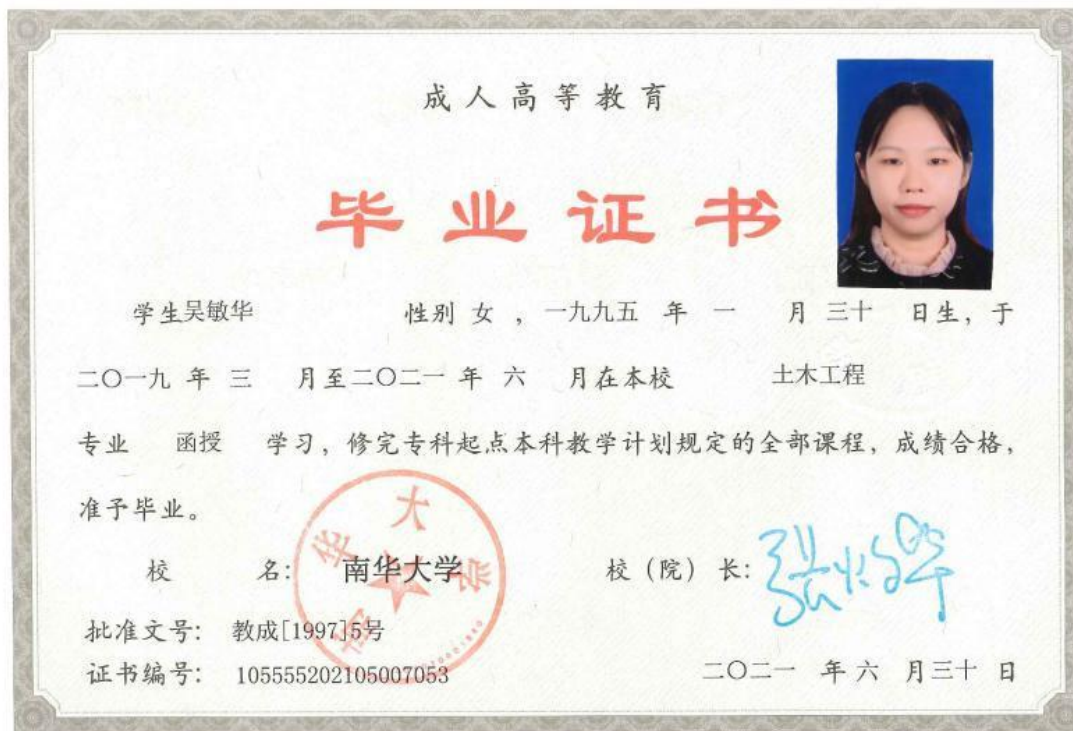 成人高等教育
毕业证书
学生吴敏华 性别 女 ，一九九五 年 一 月 三十 日生，于
二〇一九 年 三 月至二〇二一 年 六 月在本校 土木工程
专业 函授 学习，修完专科起点本科教学计划规定的全部课程，成绩合格，
准予毕业。
校 名： 南华大学 校（院）长：
南华大学
批准文号： 教成[1997]5号
证书编号： 105555202105007053 二〇二一 年 六 月三十 日